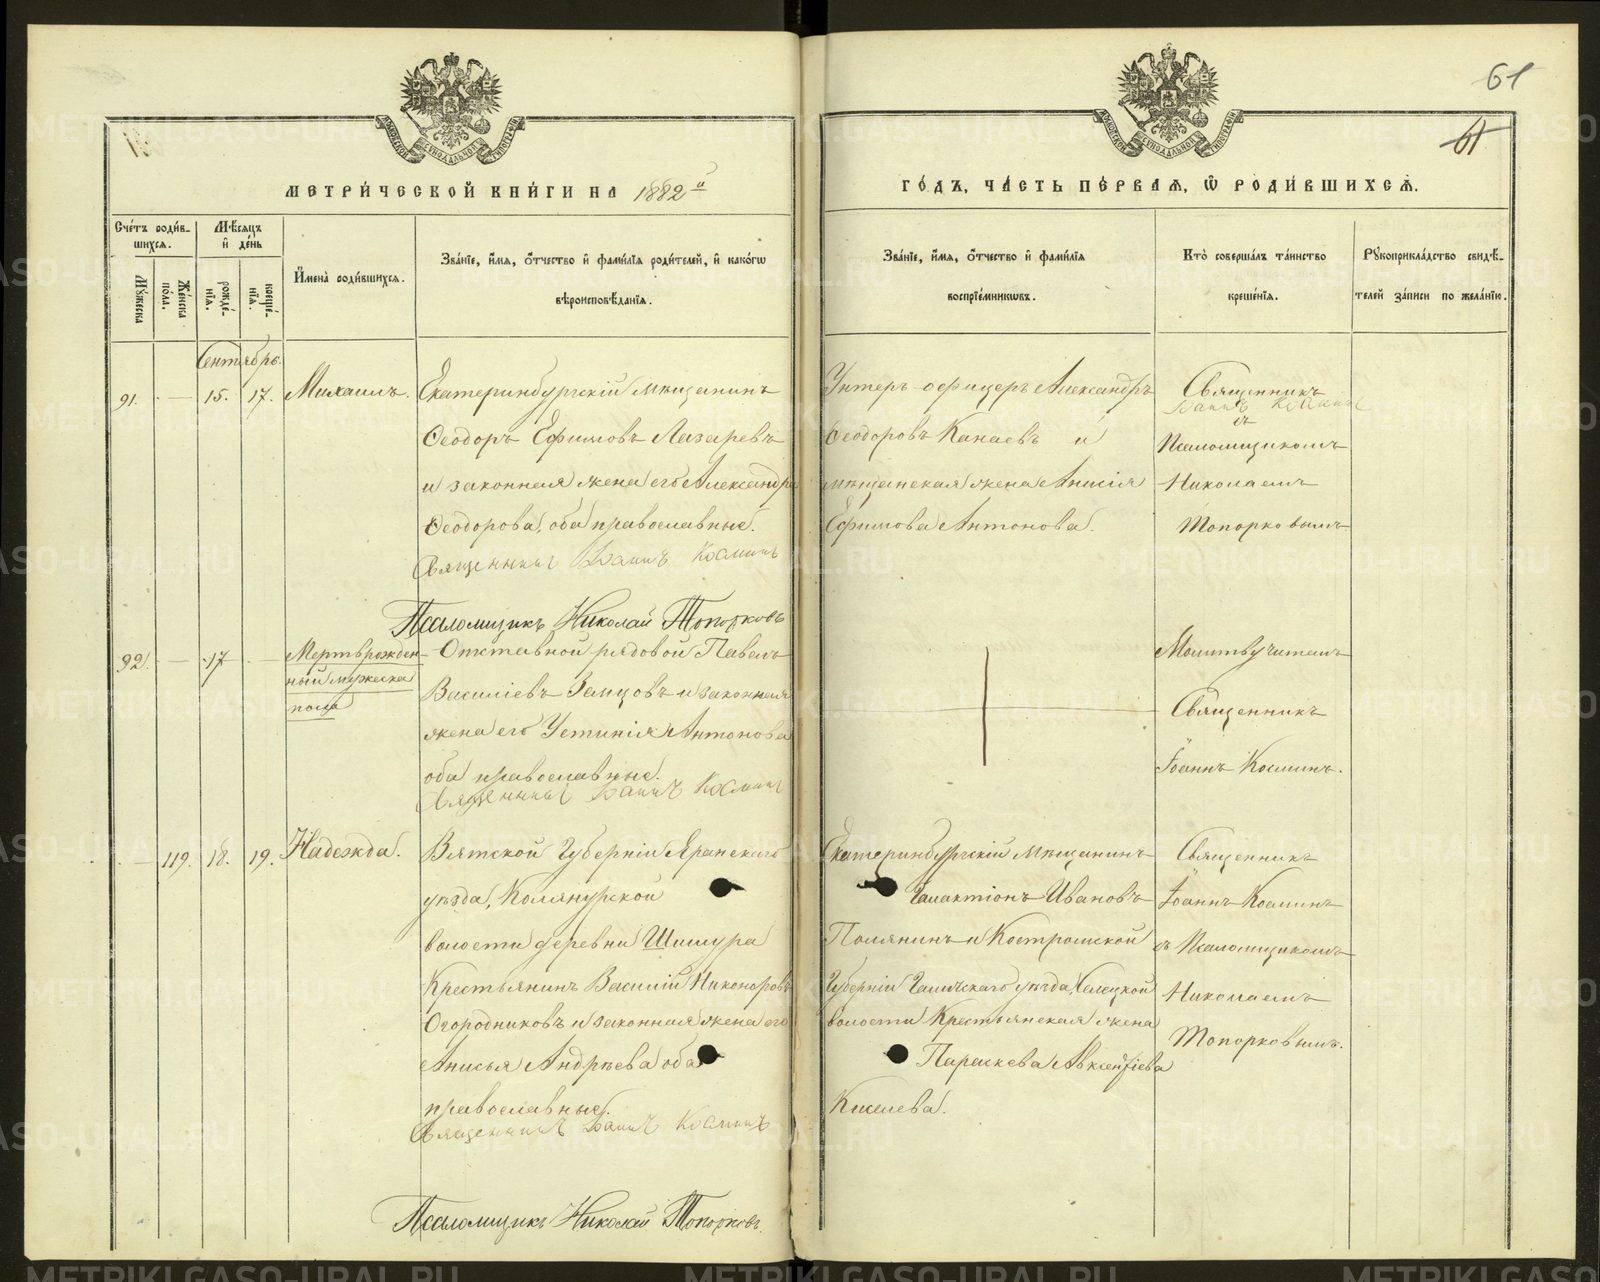 61
61
МЕТРИ́ЧЕСКОЙ КНИ́ГИ НА 1882й
ГО́ДЪ, ЧА́СТЬ ПЕ́РВАЯ, Ѿ РОДИ́ВШИХСЯ.
Сче́тъ роди́в-
шихся.
Му́жеска
Же́нска
по́ла.
Мѣ́сяцъ
и де́нь
рожде́-
нія.
креще́-
нія.
И́мена роди́вшихся.
Зва́ніе, и́мя, о́тчество и фами́лія роди́телей, и како́гѡ
вѣроисповѣ́данія.
Зва́ніе, и́мя, о́тчество и фами́лія
воспріе́мниковъ.
Кто̀ соверша́лъ та́инство
креще́нія.
Рукоприкла́дство свидѣ́-
телей за́писи по жела́нію.
Сентябрь.
91. — 15. 17. Михаилъ.
Екатеринбургскій мѣщанинъ
Ѳеодоръ Ефимовъ Лазаревъ
и законная жена его Александра
Ѳеодорова, оба православные.
Священникъ Іоаннъ Косминъ
Псаломщикъ Николай Топорковъ
Унтеръ-офицеръ Александръ
Ѳеодоровъ Канаевъ и
мѣщанская жена Анисія
Ефимова Антонова.
Священникъ
Іоаннъ Косминъ
съ
Псаломщикомъ
Николаемъ
Топорковымъ
92. — 17 — Мертврожден-
ный мужеска
пола
Отставной рядовой Павелъ
Василіевъ Земцовъ и законная
жена его Устинія Антонова
оба православные.
Священникъ Іоаннъ Косминъ
Молитву читалъ
Священникъ
Іоаннъ Косминъ.
— 119. 18. 19. Надежда.
Вятской Губерніи Яранскаго
уѣзда, Колянурской
волости деревни Шишура
Крестьянинъ Василій Никоноровъ
Огородниковъ и законная жена его
Анисья Андрѣева оба
православные.
Священникъ Іоаннъ Косминъ
Псаломщикъ Николай Топорковъ.
Екатеринбургскій мѣщанинъ
Галактіонъ Ивановъ
Полянинъ и Костромской
Губерніи Галичскаго уѣзда,
волости Крестьянская жена
Параскева Авксентіева
Киселева.
Священникъ
Іоаннъ Косминъ
съ Псаломщикомъ
Николаемъ
Топорковымъ.
METRIKI.GASO-URAL.RU